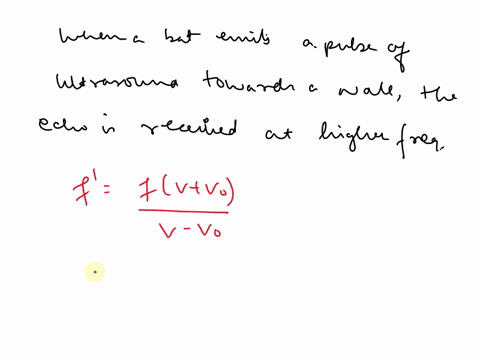 When a bat emits a pulse of
ultrasound towards a wall, the
echo is received at higher freq.
f' = f(v+v₀)
v-v₀